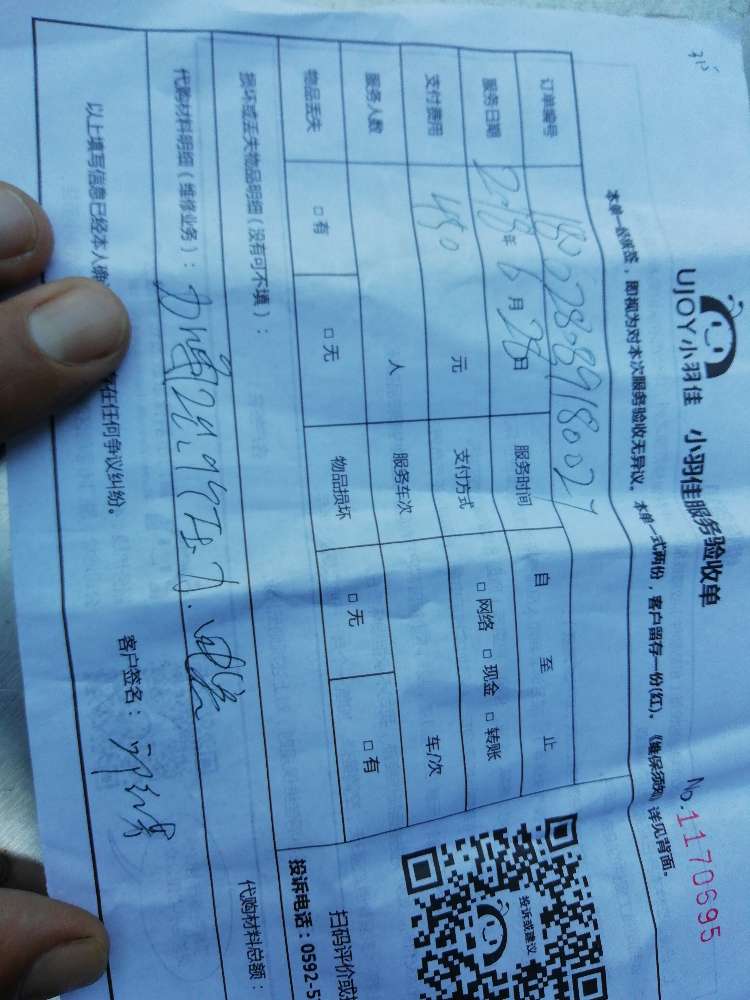 UJOY小羽佳 小羽佳服务验收单
No.1170695
本单一经客签，即视为对本次服务验收无异议。本单一式两份，客户留存一份(红)。《维保须知》详见背面。
订单编号
服务日期 2018年6月28日 服务时间 自 至 止
支付费用 450 元 支付方式 □网络 □现金 □转账
服务人数 人 服务车次 车/次
物品丢失 □有 □无 物品损坏 □无 □有
损坏或丢失物品明细（没有可不填）：
代购材料明细（维修业务）：
代购材料总额：
以上填写信息已经本人确 存在任何争议纠纷。
客户签名：
投诉或建议
扫码评价或
投诉电话：0592-5